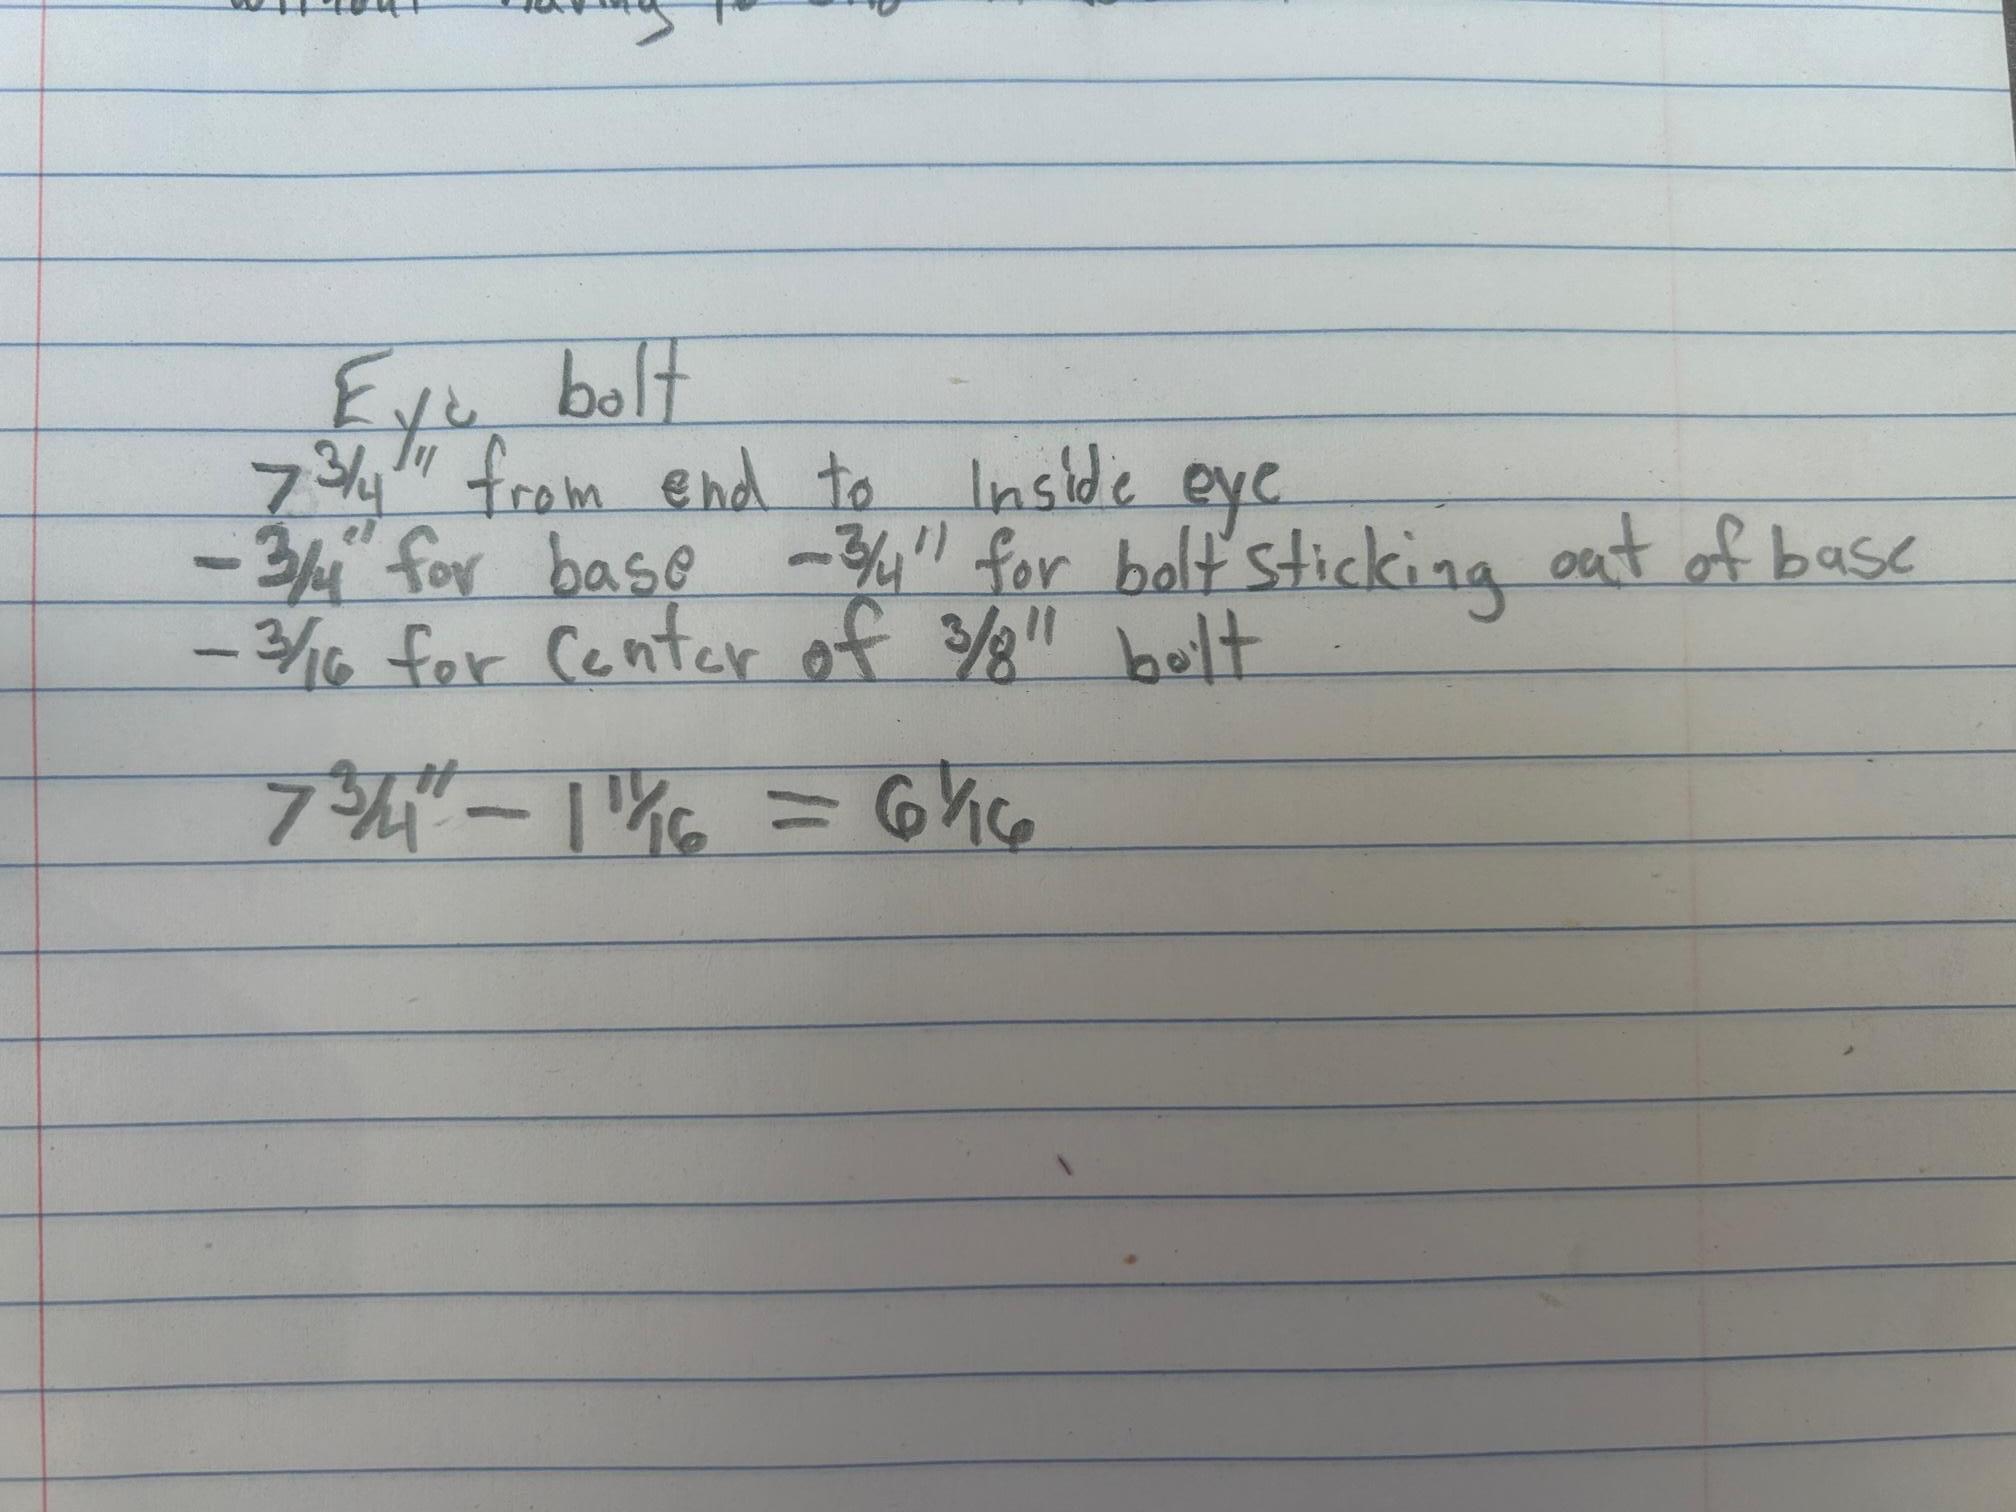 without having to
Eye bolt
7 3/4" from end to Inside eye
- 3/4" for base - 3/4" for bolt sticking out of base
- 3/16 for Center of 3/8" bolt
7 3/4" - 1 11/16 = 6 1/16